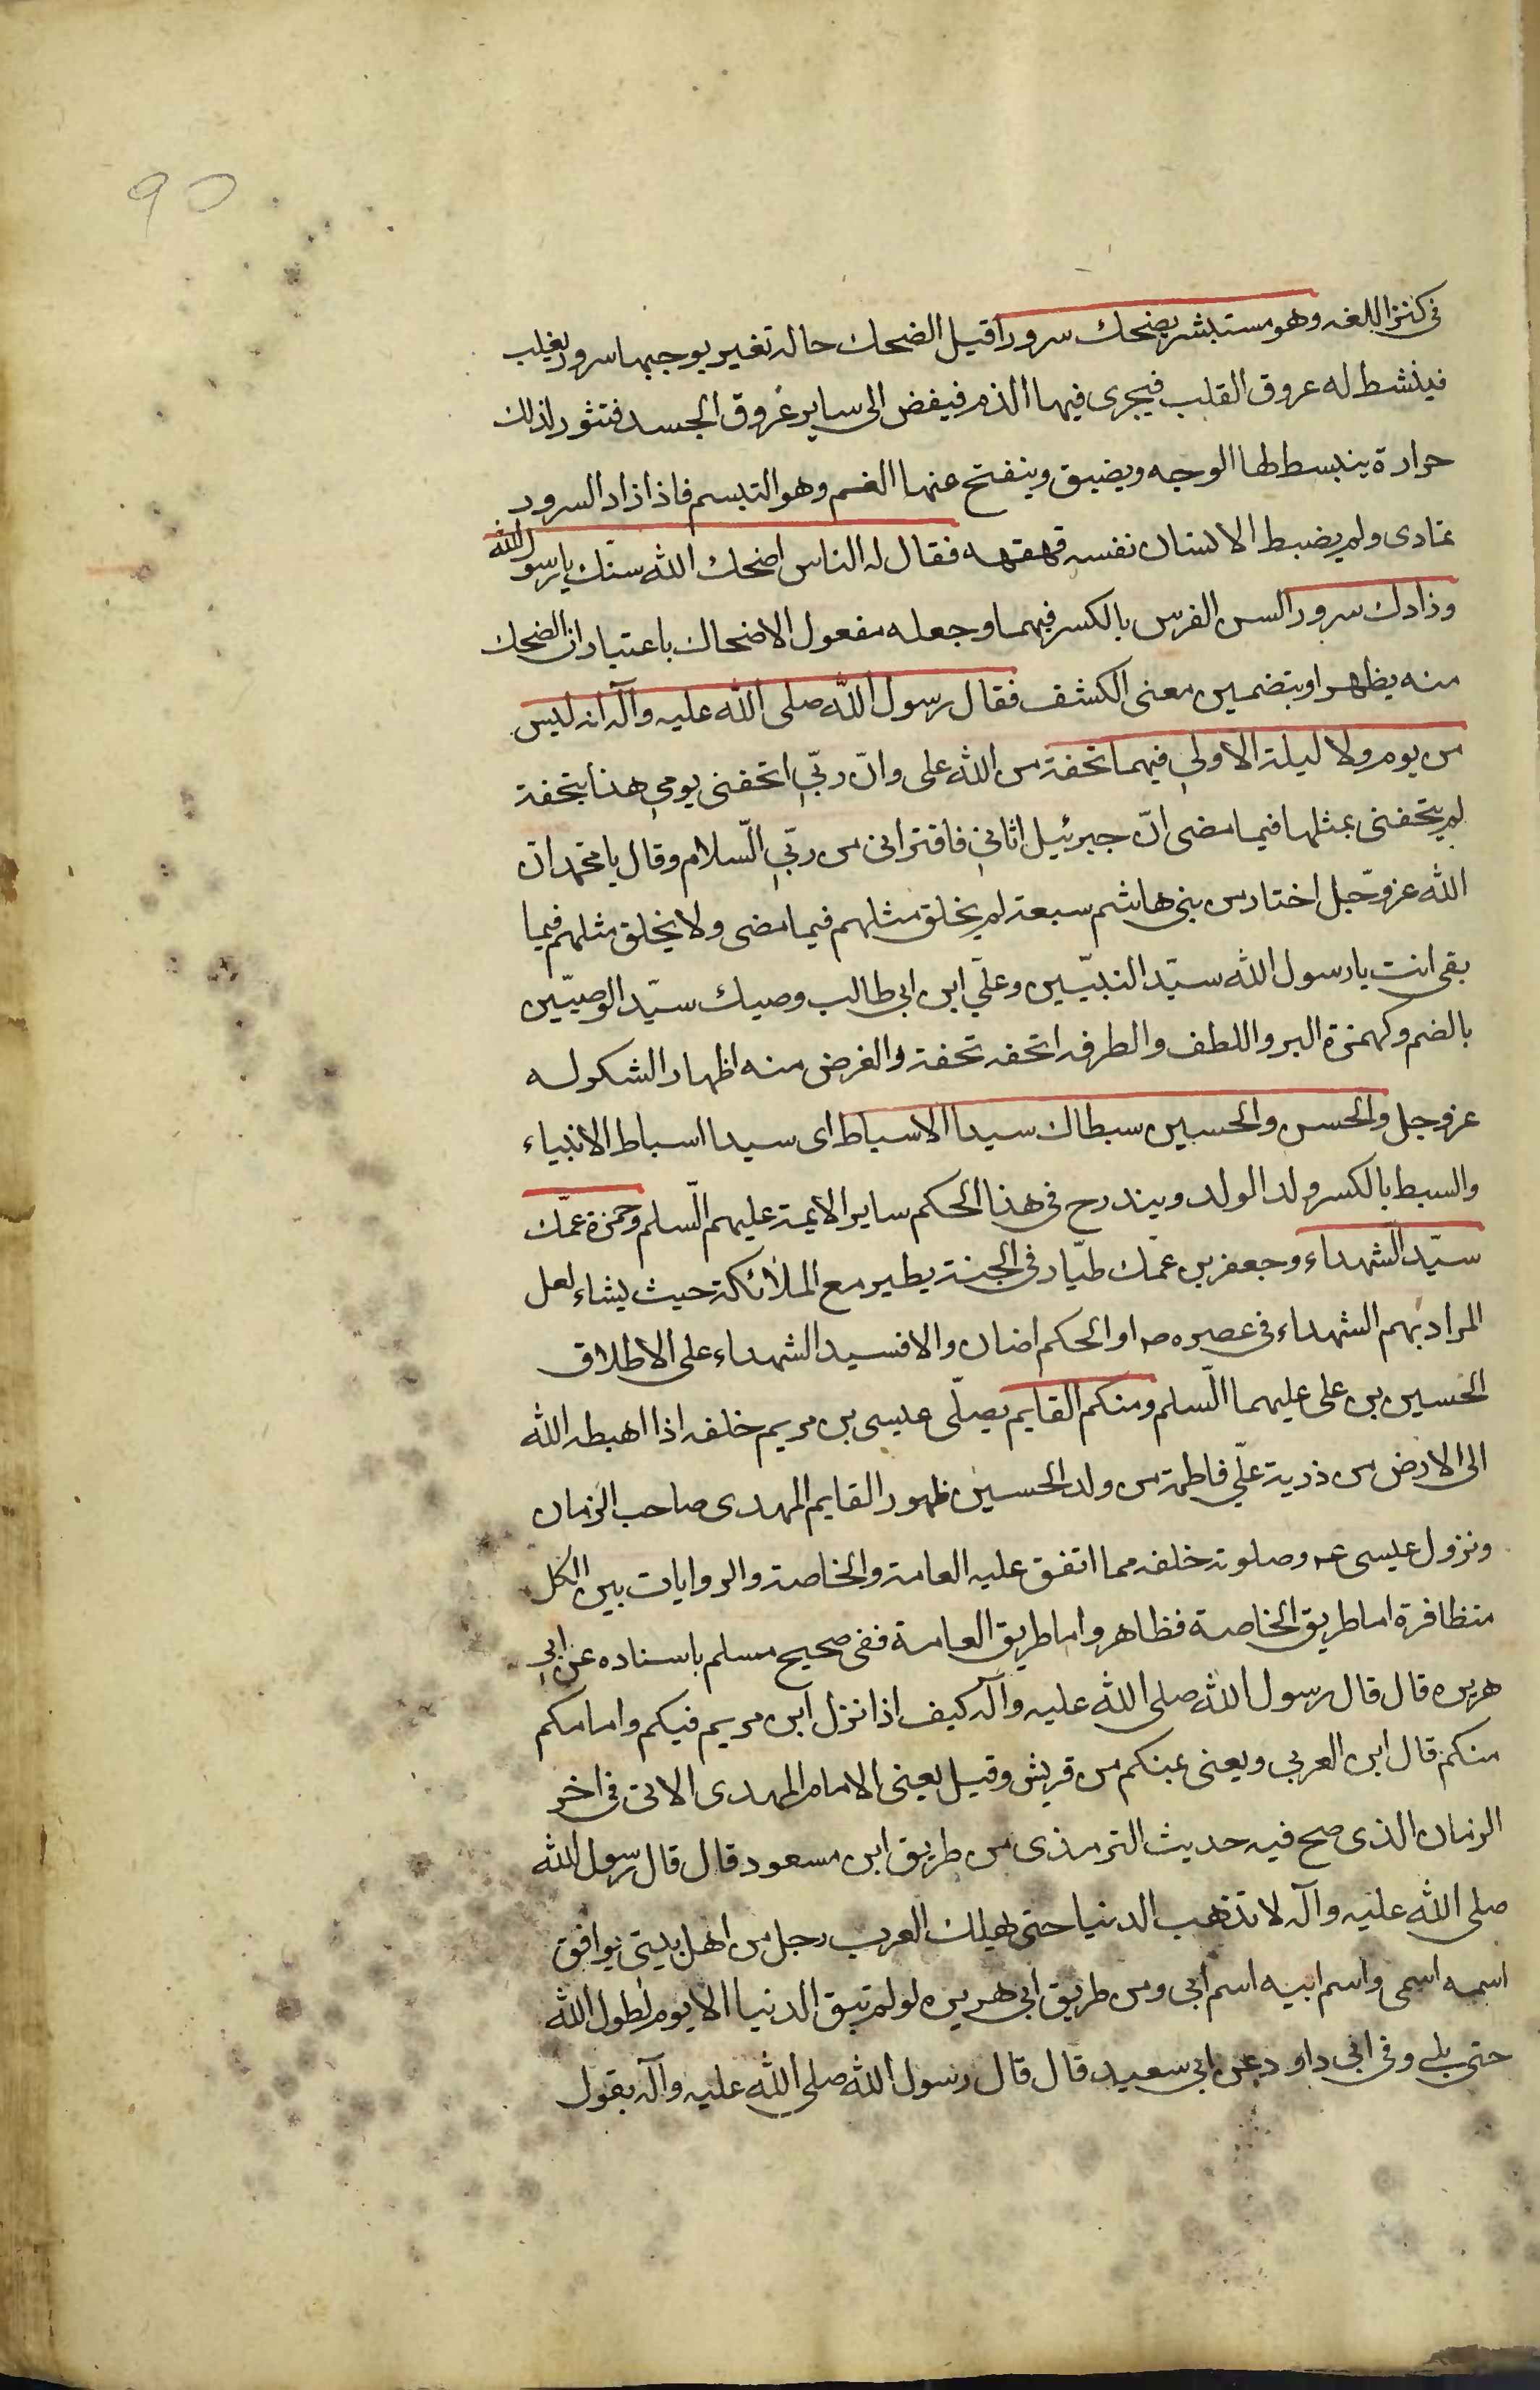 90
فى كنز اللغه وهو مستبشر يضحك سرورا قيل الضحك حاله تغير يوجبها سرور يغلب
فينشط له عروق القلب فيجرى فيها الدم فيفض الى ساير عروق الجسد فتثور لذلك
حرارة ينبسط لها الوجه ويضيق وينفتح عنها الفم وهو التبسم فاذا زاد السرور
تمادى ولم يضبط الانسان نفسه قهقهه فقال له الناس اضحك الله سنّك يا رسول الله
وزادك سرورا السن الضرس بالكسر فيهما وجعله مفعول الاضحاك باعتبار ان الضحك
منه يظهر او بتضمين معنى الكشف فقال رسول الله صلى الله عليه وآله انه ليس
من يوم ولا ليلة الا ولى فيهما تحفة من الله على وانّ ربّي اتحفنى يومي هذا بتحفة
لم يتحفنى بمثلها فيما مضى انّ جبرئيل اتاني فاقترانى من ربّي السّلام وقال يا محمّد انّ
الله عزوّجل اختار من بنى هاشم سبعة لم يخلق مثلهم فيما مضى ولا يخلق مثلهم فيما
بقى انت يا رسول الله سيّد النبيّين وعليّ ابن ابى طالب وصيك سيّد الوصيّين
بالضم وكهمزة البر واللطف والطرفه اتحفه تحفة والغرض منه اظهار الشكر له
عز وجل والحسن والحسين سبطاك سيدا الاسباط اى سيدا اسباط الانبياء
والسبط بالكسر ولد الولد ويندرج فى هذا الحكم ساير الايمة عليهم السّلم وحمزة عمّك
سيّد الشهداء وجعفر بن عمّك طيّار فى الجنة يطير مع الملائكة حيث يشاء لعل
المراد بهم الشهداء فى عصره صه او الحكم اضاف والا فسيد الشهداء على الاطلاق
الحسين بن على عليهما السّلم ومنكم القايم يصلّى عيسى بن مريم خلفه اذا اهبطه الله
الى الارض من ذرية عليّ فاطمة من ولد الحسين ظهور القايم المهدى صاحب الزمان
ونزول عيسى عه وصلوته خلفه مما اتفق عليه العامة والخاصة والروايات بين الكل
متظافرة اما طريق الخاصة فظاهر واما طريق العامة ففى صحيح مسلم باسناده عن ابي
هريره قال قال رسول الله صلى الله عليه وآله كيف اذا نزل ابن مريم فيكم وامامكم
منكم قال ابن العربى ويعنى بمنكم من قريش وقيل يعنى الامام المهدى الاتى فى اخر
الزمان الذى صح فيه حديث الترمذى من طريق ابن مسعود قال قال رسول الله
صلى الله عليه وآله لا تذهب الدنيا حتى يملك العرب رجل من اهل بيتى يوافق
اسمه اسمى واسم ابيه اسم ابى ومن طريق ابى هريره لو لم تبق الدنيا الا يوم لطول الله
حتى يلى وفى ابى داود عن ابى سعيد قال قال رسول الله صلى الله عليه وآله يقول